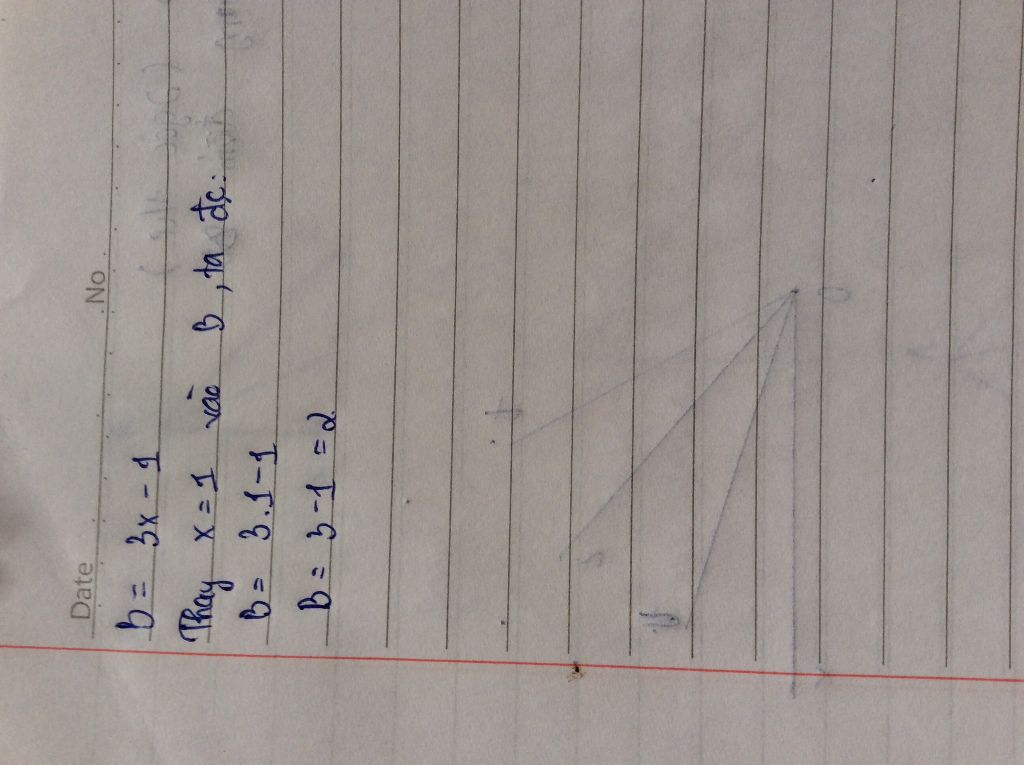 Date No
B = 3x - 1
Thay x = 1 vào B, ta đc:
B = 3.1-1
B = 3-1 = 2